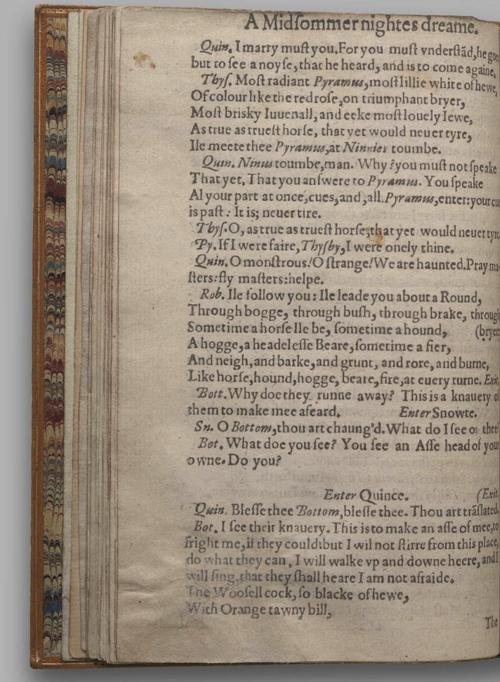 A Midſommer nightes dreame.
Quin. I marry muſt you. For you muſt vnderſtãd, he goes
but to ſee a noyſe, that he heard, and is to come againe.
Thyſ. Moſt radiant Pyramus, moſt lillie white of hewe,
Of colour like the red roſe, on triumphant bryer,
Moſt brisky Iuuenall, and eeke moſt louely Iewe,
As true as trueſt horſe, that yet would neuer tyre,
Ile meete thee Pyramus, at Ninnies toumbe.
Quin. Ninus toumbe, man. Why? you muſt not ſpeake
That yet. That you anſwere to Pyramus. You ſpeake
Al your part at once, cues, and, all. Pyramus, enter: your cue
is paſt: It is; neuer tire.
Thyſ. O, as true as trueſt horſe, that yet would neuer tyre.
Py. If I were faire, Thyſby, I were onely thine.
Quin. O monſtrous! O ſtrange! We are haunted. Pray ma
ſters: fly maſters: helpe.
Rob. Ile follow you: Ile leade you about a Round,
Through bogge, through buſh, through brake, through
Sometime a horſe Ile be, ſometime a hound, (bryer
A hogge, a headeleſſe Beare, ſometime a fier,
And neigh, and barke, and grunt, and rore, and burne,
Like horſe, hound, hogge, beare, fire, at euery turne. Exit.
Bott. Why doe they runne away? This is a knauery of
them to make mee afeard. Enter Snowte.
Sn. O Bottom, thou art chaung'd. What do I ſee on thee?
Bot. What doe you ſee? You ſee an Aſſe head of your
owne. Do you?
Enter Quince. (Exit.
Quin. Bleſſe thee Bottom, bleſſe thee. Thou art trãſlated.
Bot. I ſee their knauery. This is to make an aſſe of mee, to
fright me, if they could: but I wil not ſtirre from this place,
do what they can. I will walke vp and downe heere, and I
will ſing, that they ſhall heare I am not afraide.
The Wooſell cock, ſo blacke of hewe,
With Orange tawny bill,
The